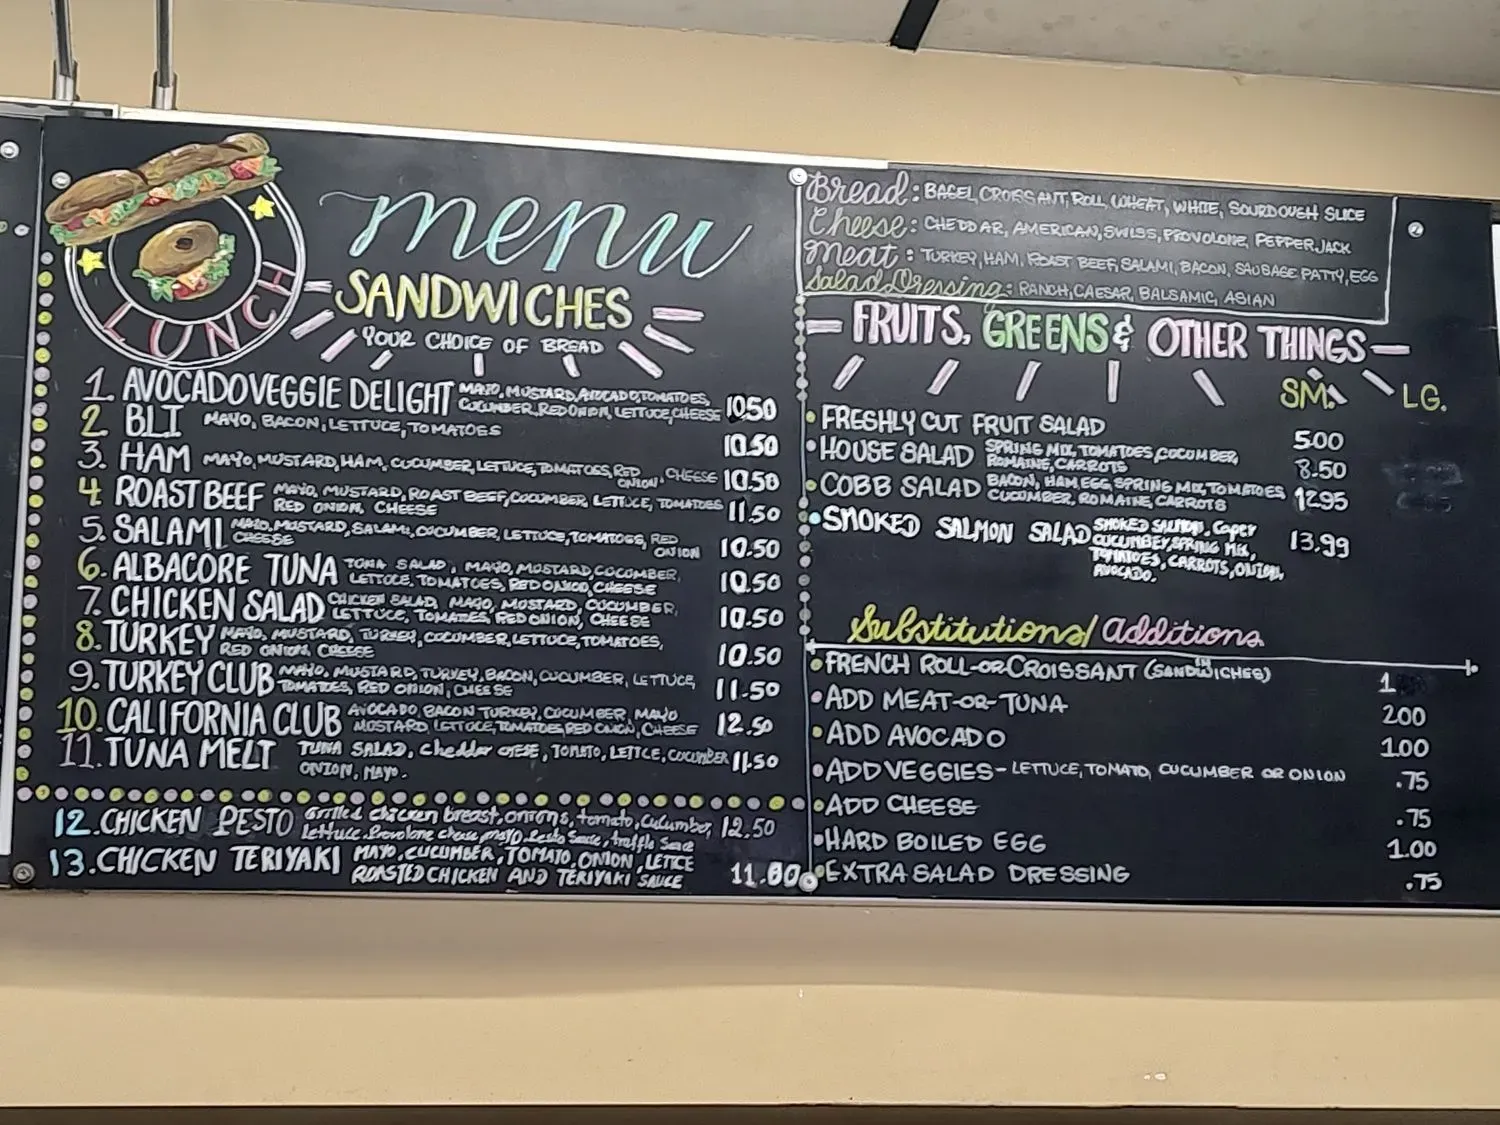 LUNCH
menu
SANDWICHES
YOUR CHOICE OF BREAD
1. AVOCADO VEGGIE DELIGHT MAYO, MUSTARD, AVOCADO, TOMATOES,
CUCUMBER, RED ONION, LETTUCE, CHEESE 10.50
2. BLT MAYO, BACON, LETTUCE, TOMATOES 10.50
3. HAM MAYO, MUSTARD, HAM, CUCUMBER, LETTUCE, TOMATOES, RED ONION, CHEESE 10.50
4. ROAST BEEF MAYO, MUSTARD, ROAST BEEF, CUCUMBER, LETTUCE, TOMATOES
RED ONION, CHEESE 11.50
5. SALAMI MAYO, MUSTARD, SALAMI, CUCUMBER, LETTUCE, TOMATOES, RED ONION
CHEESE 10.50
6. ALBACORE TUNA TUNA SALAD, MAYO, MUSTARD, CUCUMBER,
LETTUCE, TOMATOES, RED ONION, CHEESE 10.50
7. CHICKEN SALAD CHICKEN SALAD, MAYO, MUSTARD, CUCUMBER,
LETTUCE, TOMATOES, RED ONION, CHEESE 10.50
8. TURKEY MAYO, MUSTARD, TURKEY, CUCUMBER, LETTUCE, TOMATOES,
RED ONION, CHEESE 10.50
9. TURKEY CLUB MAYO, MUSTARD, TURKEY, BACON, CUCUMBER, LETTUCE,
TOMATOES, RED ONION, CHEESE 11.50
10. CALIFORNIA CLUB AVOCADO, BACON TURKEY, CUCUMBER, MAYO
MUSTARD, LETTUCE, TOMATOES, RED ONION, CHEESE 12.50
11. TUNA MELT TUNA SALAD, Cheddar CHEESE, TOMATO, LETTCE, CUCUMBER
ONION, MAYO. 11.50
12. CHICKEN PESTO Grilled chicken breast, onions, tomato, Cucumber,
lettuce, Provolone cheese, mayo, Pesto Sauce, truffle Sauce 12.50
13. CHICKEN TERIYAKI MAYO, CUCUMBER, TOMATO, ONION, LETTCE
ROASTED CHICKEN AND TERIYAKI SAUCE 11.00
Bread: BAGEL, CROISSANT, ROLL, WHEAT, WHITE, SOURDOUGH SLICE
Cheese: CHEDDAR, AMERICAN, SWISS, PROVOLONE, PEPPERJACK
Meat: TURKEY, HAM, ROAST BEEF, SALAMI, BACON, SAUSAGE PATTY, EGG
Salad Dressing: RANCH, CAESAR, BALSAMIC, ASIAN
FRUITS, GREENS & OTHER THINGS
SM. LG.
FRESHLY CUT FRUIT SALAD 5.00
HOUSE SALAD SPRING MIX, TOMATOES, CUCUMBER,
ROMAINE, CARROTS 8.50
COBB SALAD BACON, HAM, EGG, SPRING MIX, TOMATOES
CUCUMBER, ROMAINE, CARROTS 12.95
SMOKED SALMON SALAD SMOKED SALMON, Caper
CUCUMBER, SPRING MIX,
TOMATOES, CARROTS, ONION,
AVOCADO. 13.99
Substitutions/additions
FRENCH ROLL-OR-CROISSANT (SANDWICHES) 1
ADD MEAT-OR-TUNA 2.00
ADD AVOCADO 1.00
ADD VEGGIES- LETTUCE, TOMATO, CUCUMBER OR ONION .75
ADD CHEESE .75
HARD BOILED EGG 1.00
EXTRA SALAD DRESSING .75